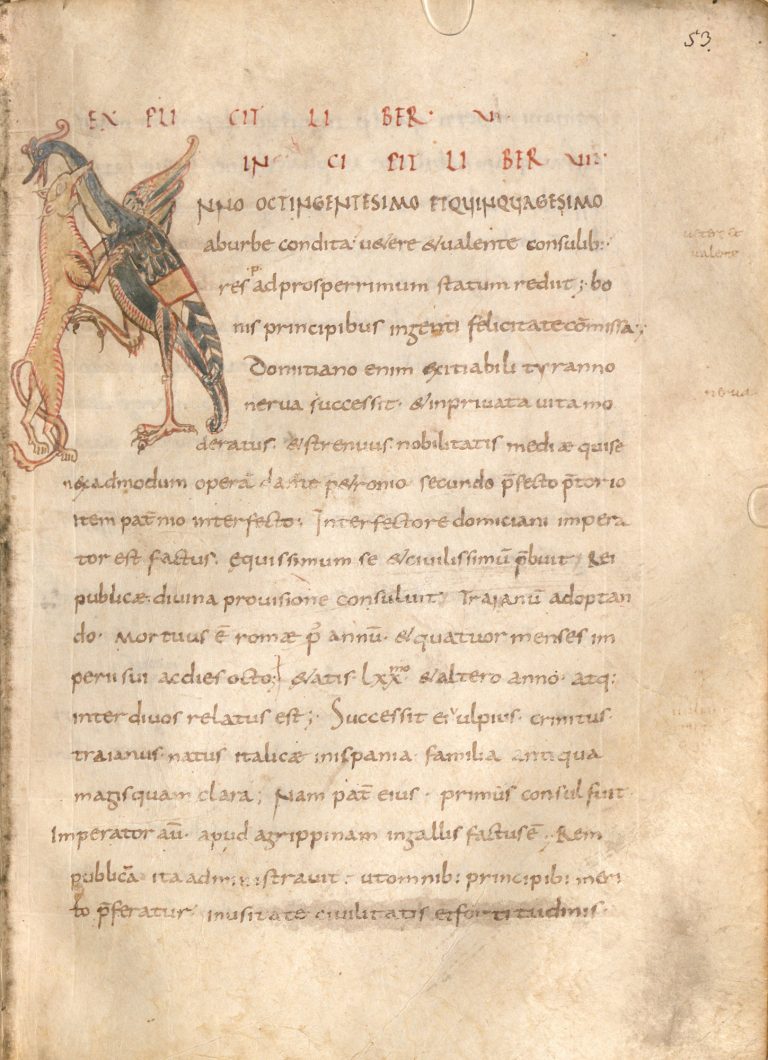 53
EX PLI CIT LI BER VII
IN CI PIT LI BER VIII
NNO OCTINGENTESIMO ET QUINQUAGESIMO
ab urbe condita. uetere & ualente consulib:
res p ad prosperrimum statum rediit; bo
nis principibus ingenti felicitate cōmissa;
Domitiano enim exitiabili tyranno
nerua successit. & in priuata uita mo
deratus. & strenuus. nobilitatis mediæ qui se
nex admodum operā petronio secundo p̄fecto p̄torio
item interfecto; Interfectore domiciani impera
tor est factus. equissimum se & ciuilissimū p̄buit. Rei
publicæ diuina prouisione consuluit. Traianū adoptan
do. Mortuus ē romæ p̄ annū. & quatuor menses im
perii sui ac dies octo; &atis lxx mo & altero anno. atq:
inter diuos relatus est; Successit ei ulpius. crinitus.
traianus. natus italicæ in ispania. familia antiqua
magis quam clara; Nam pat̄ eius. primus consul fuit.
Imperator aū. apud agrippinam in gallis factus ē. Rem
publicā ita administrauit. ut omnib: principib: meri
to p̄feratur. inusitate ciuilitatis et fortitudinis.
nerua